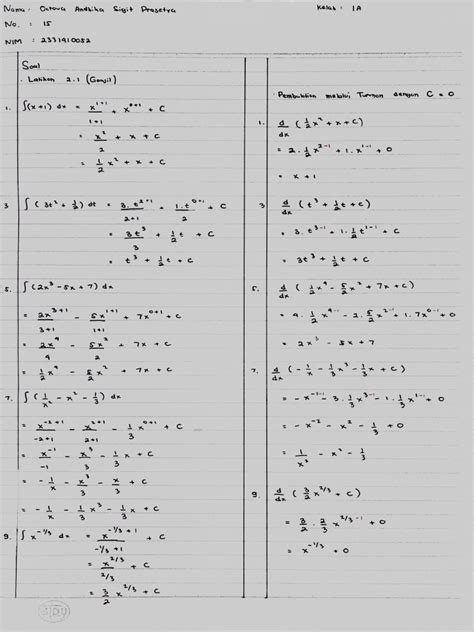 Nama : Octova Andhika Sigit Prasetya    Kelas : 1A
No. : 15
NIM : 2331410052
Soal
- Latihan 2.1 (Ganjil)
1. ∫(x+1) dx = x^(1+1)/(1+1) + x^(0+1) + C
= x²/2 + x + C
= 1/2 x² + x + C
3 ∫(3t² + 1/2) dt = 3.t^(2+1)/(2+1) + 1.t^(0+1)/2 + C
= 3t³/3 + 1/2 t + C
= t³ + 1/2 t + C
5. ∫(2x³ - 5x + 7) dx
= 2x^(3+1)/(3+1) - 5x^(1+1)/(1+1) + 7x^(0+1) + C
= 2x⁴/4 - 5x²/2 + 7x + C
= 1/2 x⁴ - 5/2 x² + 7x + C
7. ∫(1/x² - x² - 1/3) dx
= x^(-2+1)/(-2+1) - x^(2+1)/(2+1) - 1/3 x^(0+1) + C
= x^(-1)/(-1) - x³/3 - 1/3 x + C
= - 1/x - x³/3 - 1/3 x + C
= - 1/x - 1/3 x³ - 1/3 x + C
9. ∫ x^(-1/3) dx = x^(-1/3 + 1)/(-1/3 + 1) + C
= x^(2/3)/(2/3) + C
= 3/2 x^(2/3) + C
- Pembuktian melalui Turunan dengan C = 0
1. d/dx (1/2 x² + x + C)
= 2 . 1/2 x^(2-1) + 1.x^(1-1) + 0
= x + 1
3 d/dx (t³ + 1/2 t + C)
= 3.t^(3-1) + 1.1/2 t^(1-1) + C
= 3t² + 1/2 + C
5. d/dx (1/2 x⁴ - 5/2 x² + 7x + C)
= 4.1/2 x^(4-1) - 2.5/2 x^(2-1) + 1.7x^(0-1) + 0
= 2x³ - 5x + 7
7. d/dx (- 1/x - 1/3 x³ - 1/3 x + C)
= - x^(-1-1) - 3.1/3 x^(3-1) - 1.1/3 x^(1-1) + 0
= - x^(-2) - x² - 1/3 + 0
= 1/x² - x² - 1/3
9. d/dx (3/2 x^(2/3) + C)
= 3/2 . 2/3 x^(2/3 - 1) + 0
= x^(-1/3) + 0